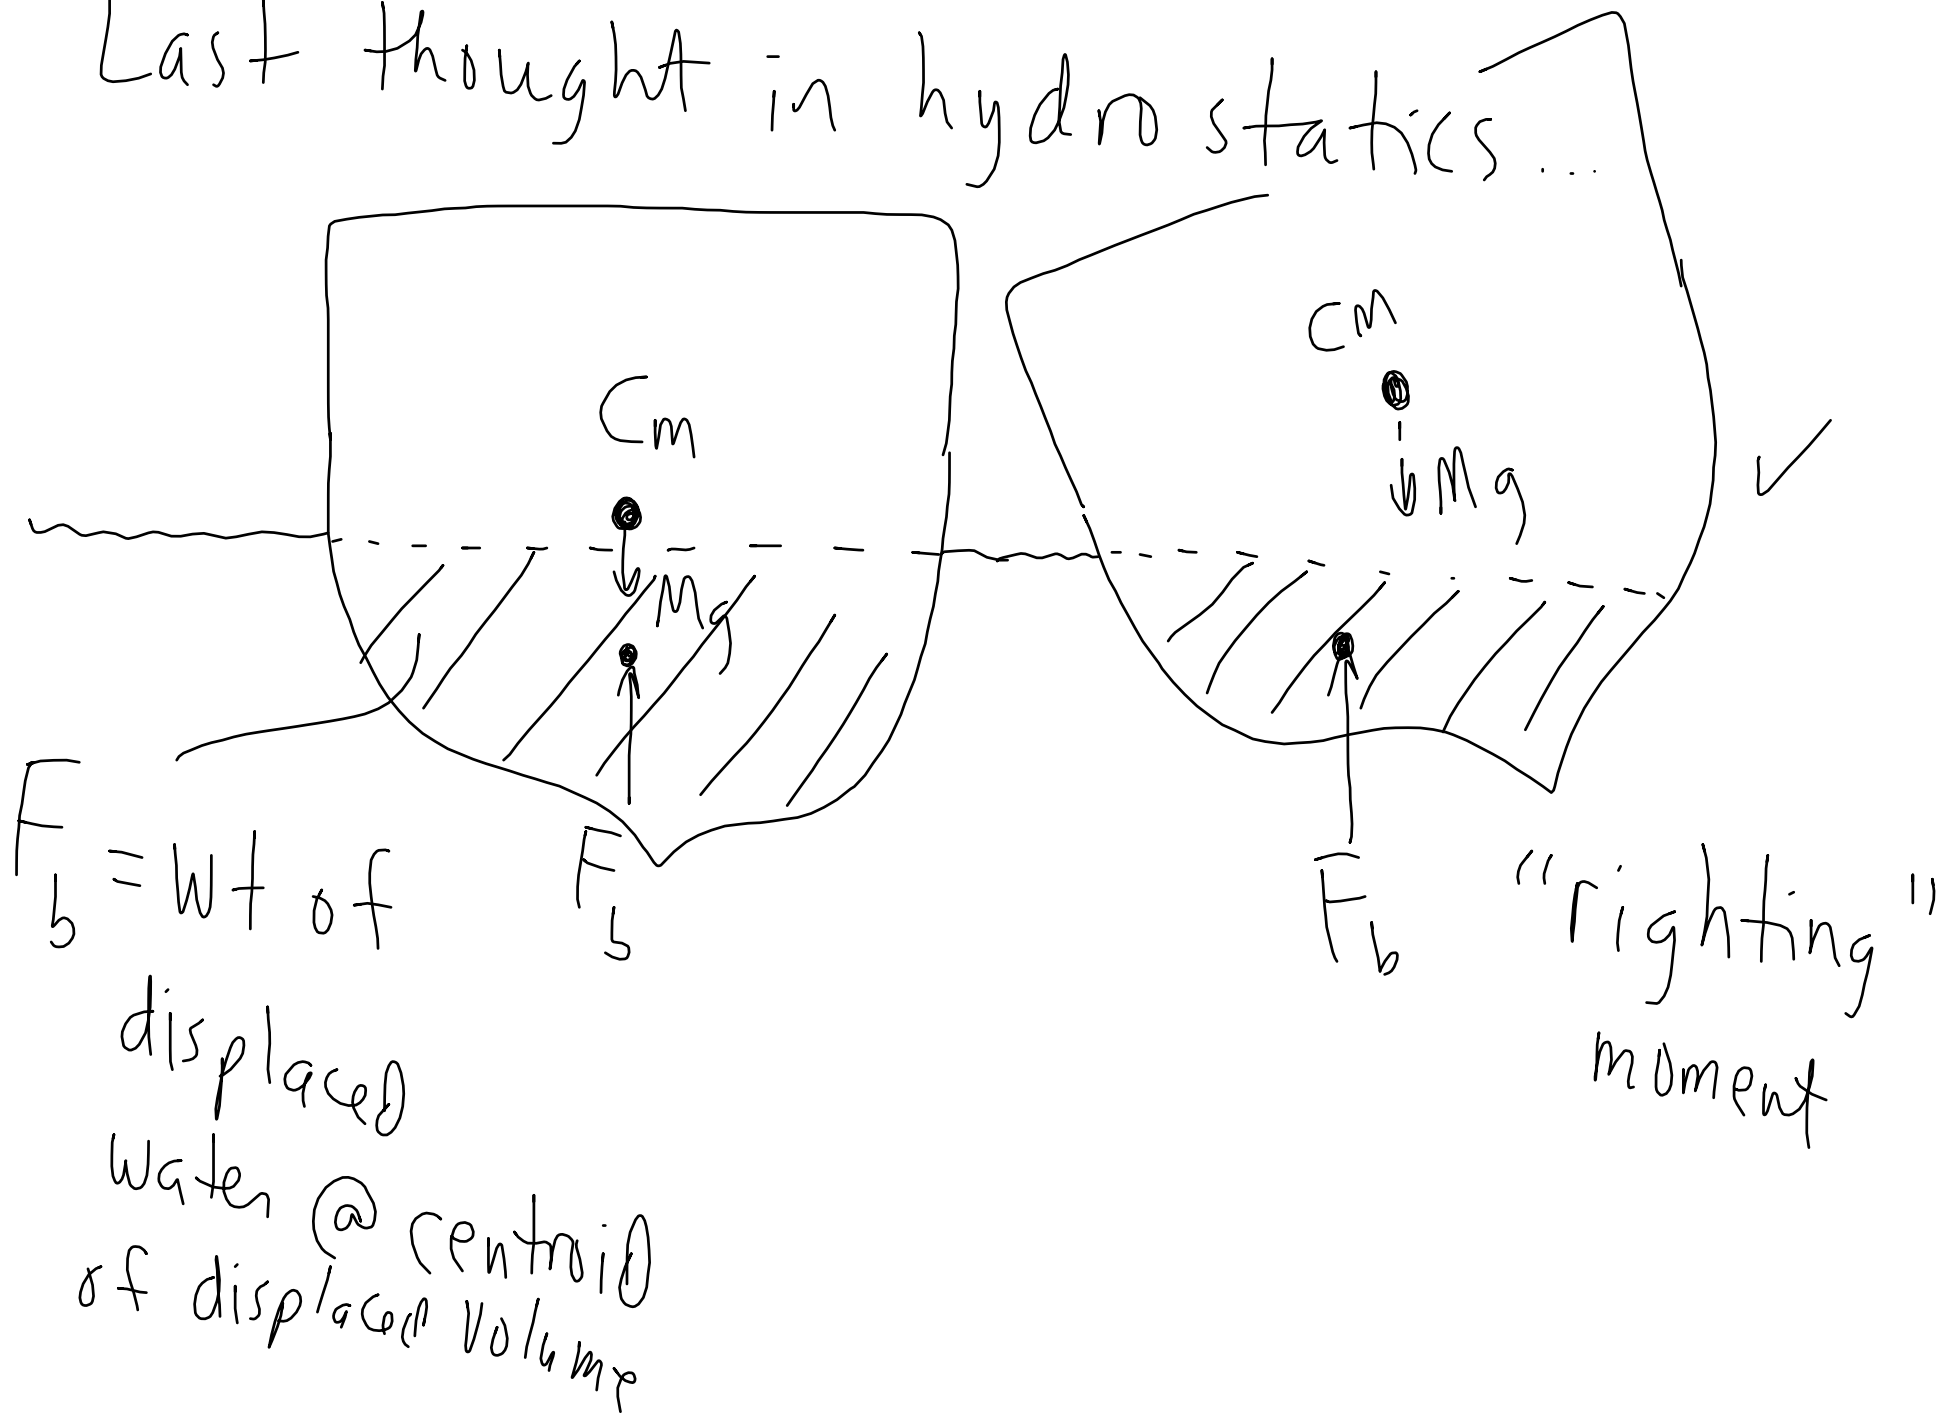 Last thought in hydrostatics...
Cm
Mg
F_b
F_b = Wt of
displaced
water @ centroid
of displaced volume
CM
Mg
F_b
"righting"
moment